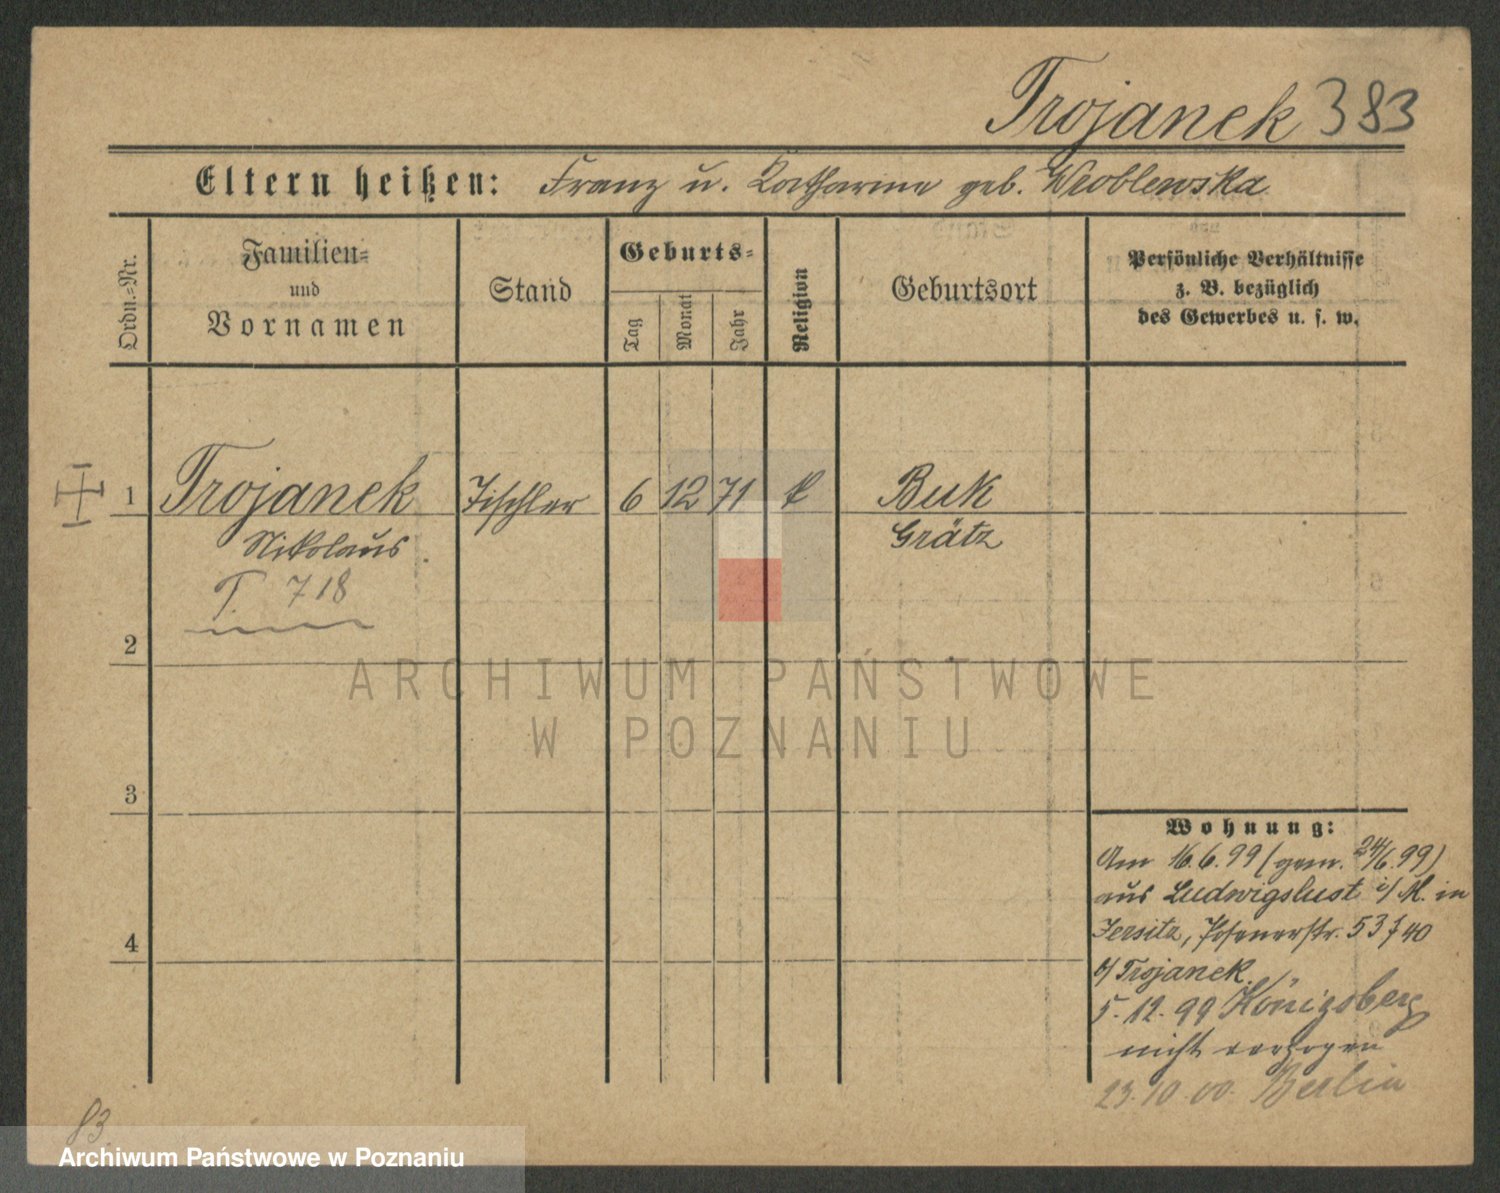 Trojanek 383
Eltern heißen: Franz u. Katharine geb. Wroblewska
Ordn.-Nr.
Familien-
und
Vornamen
Stand
Geburts-
Tag
Monat
Jahr
Religion
Geburtsort
Persönliche Verhältnisse
z. B. bezüglich
des Gewerbes u. s. w.
1 Trojanek Tischler 6 12 71 k Buk
Nikolaus Grätz
T. 718
2
3
4
Wohnung:
Am 16.6.99 (gem. 24/6.99)
aus Ludwigslust i/M. in
Jersitz, Posenerstr. 53 40
b/ Trojanek.
5.12.99 Königsberg
nicht verzogen
23.10.00. Berlin
83
ARCHIWUM PAŃSTWOWE
W POZNANIU
Archiwum Państwowe w Poznaniu